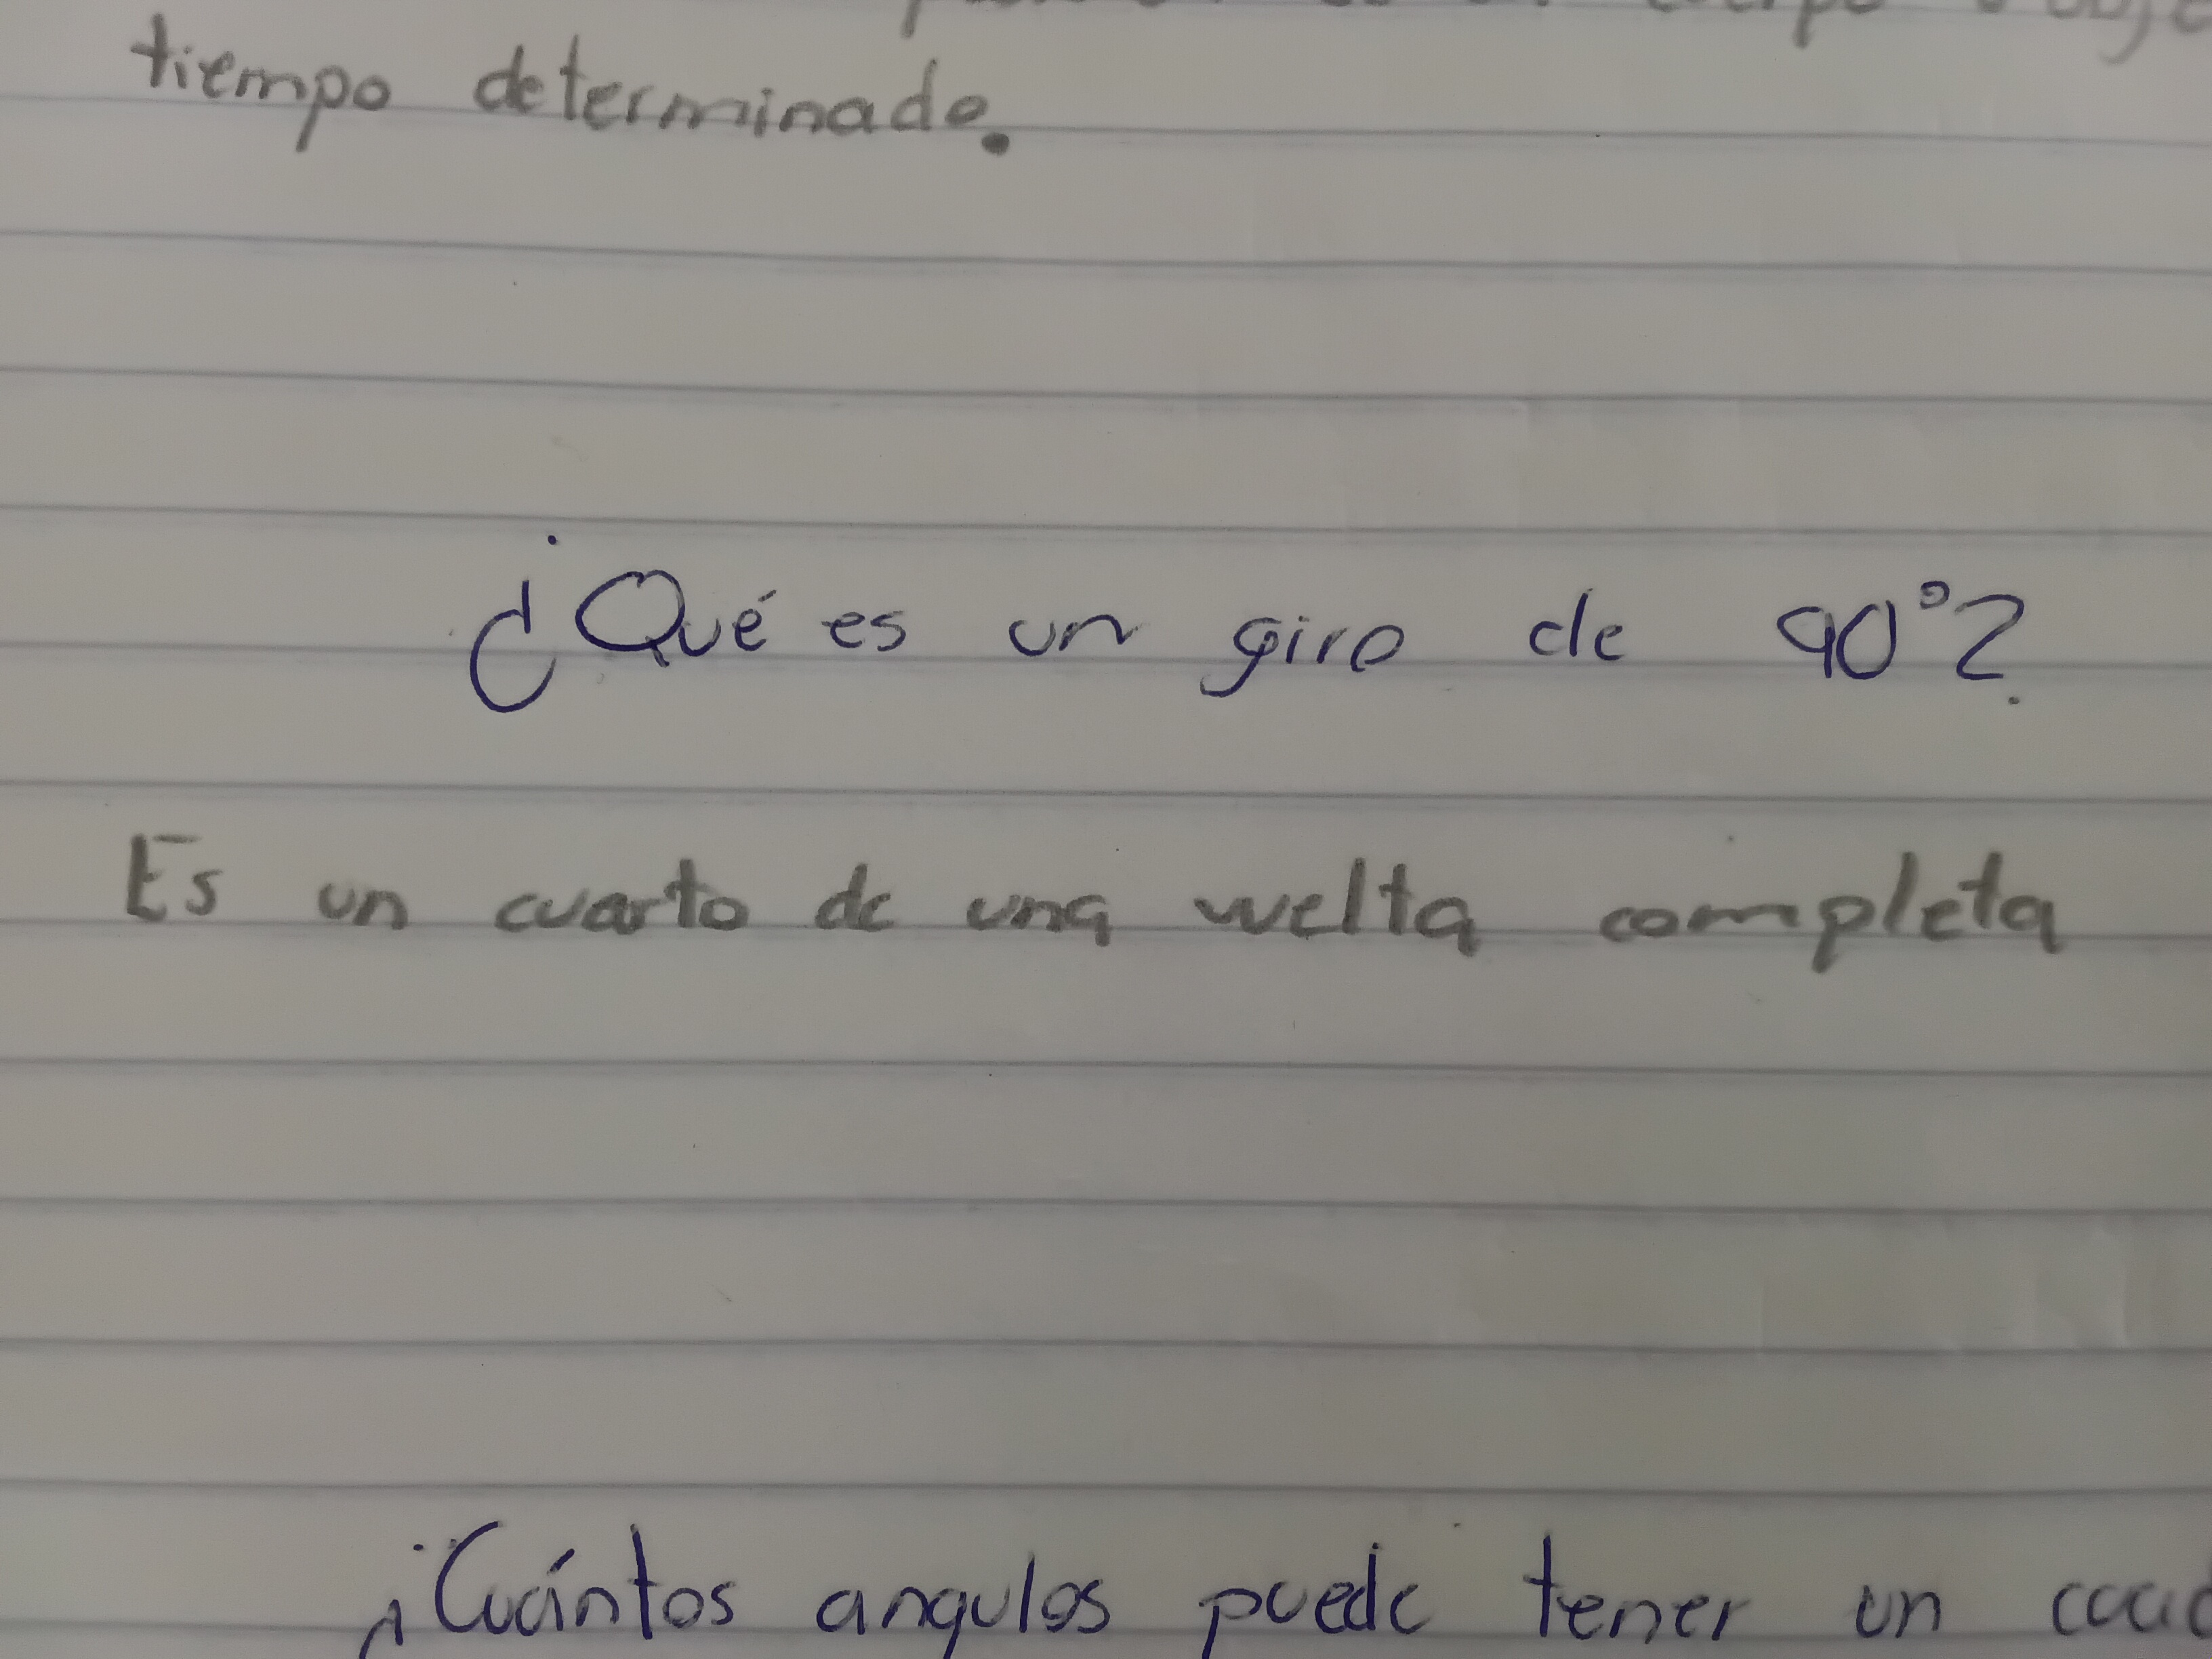 tiempo determinado.
¿Qué es un giro de 90°?
Es un cuarto de una vuelta completa
¿Cuántos angulos puede tener un